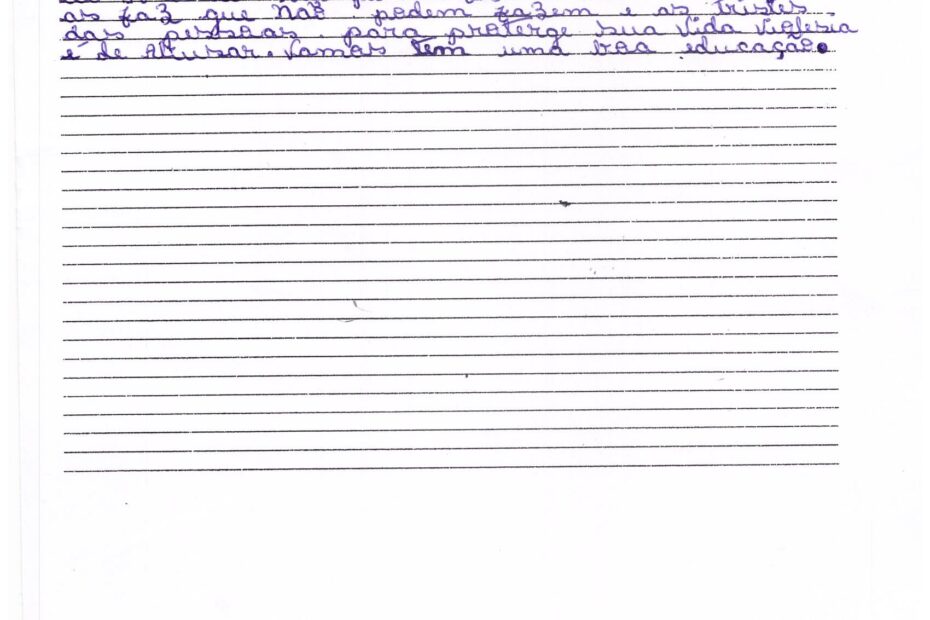 as faz que não podem fazem e as tristes
das pessoas. para proterge sua vida
é de Abusar. Vamos tem uma boa educação.